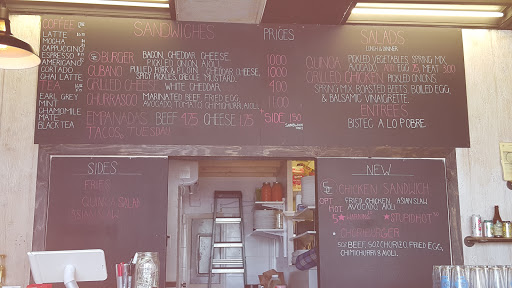 COFFEE
LATTE
MOCHA
CAPPUCCINO
ESPRESSO
AMERICANO
CORTADO
CHAI LATTE
TEA
EARL GREY
MINT
CHAMOMILE
MATE
BLACK TEA
SANDWICHES
PRICES
BURGER BACON, CHEDDAR CHEESE,
PICKLED ONION, AIOLI
CUBANO PULLED PORK, CHEDDAR CHEESE,
SPICY PICKLES, CREOLE MUSTARD.
GRILLED CHEESE WHITE CHEDDAR
CHURRASCO MARINATED BEEF, FRIED EGG,
AVOCADO, TOMATO, CHIMICHURRI, AIOLI.
EMPANADAS BEEF 4.75 CHEESE 1.25
TACOS, TUESDAY
1000
1000
4.00
11.00
SIDE 1.50
SALADS
LUNCH & DINNER
QUINOA PICKED VEGETABLES, SPRING MIX,
EGG 2.5 MEAT 300
GRILLED CHICKEN PICKLED ONIONS,
SPRING MIX, ROASTED BEETS, BOILED EGG,
& BALSAMIC VINAIGRETTE.
ENTREES
BISTEC A LO POBRE
SIDES
FRIES
QUINOA SALAD
NEW
CHICKEN SANDWICH
OPT FRIED CHICKEN, ASIAN SLAW
HOT AVOCADO, AIOLI
WARNING "STUPID HOT"
CHORIBURGER
50Z BEEF, 50Z CHORIZO, FRIED EGG,
CHIMICHURRI & AIOLI.